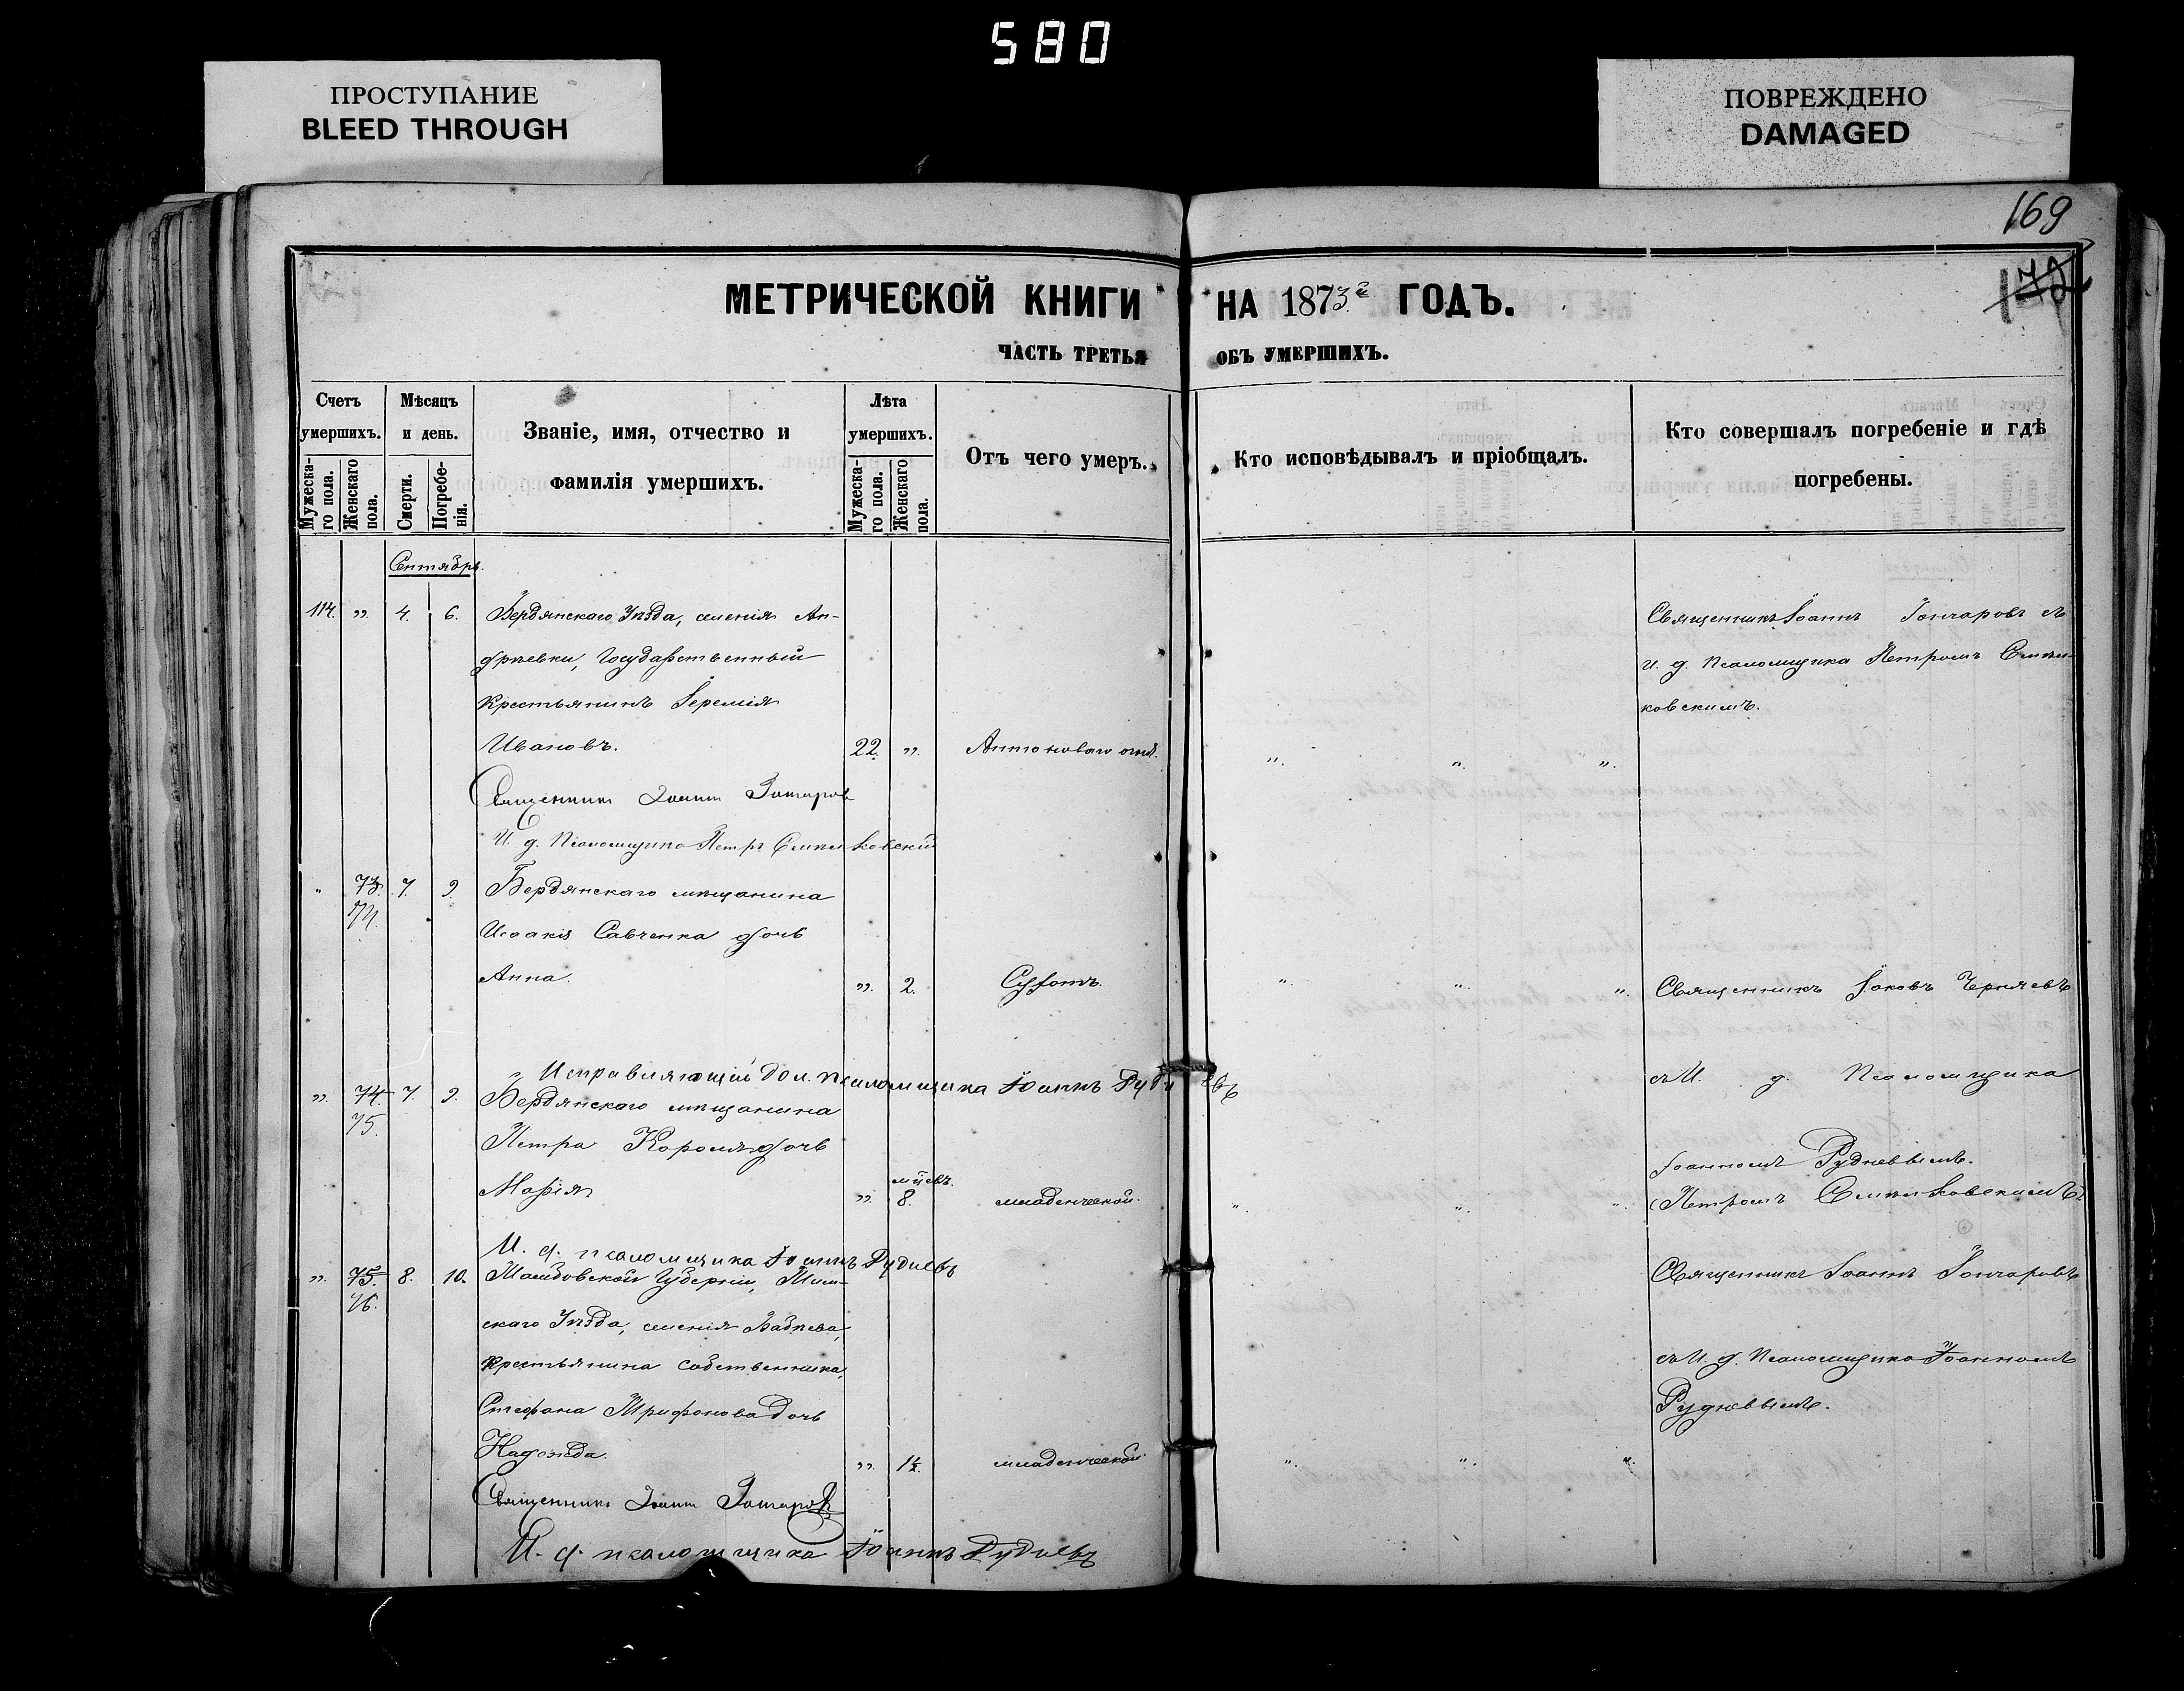 580
ПРОСТУПАНИЕ
BLEED THROUGH
ПОВРЕЖДЕНО
DAMAGED
169
172
МЕТРИЧЕСКОЙ КНИГИ НА 1873й ГОДЪ.
ЧАСТЬ ТРЕТЬЯ ОБЪ УМЕРШИХЪ.
Счетъ умершихъ.
Мужескаго пола.
Женскаго пола.
Мѣсяцъ и день.
Смерти.
Погребенія.
Званіе, имя, отчество и фамилія умершихъ.
Лѣта умершихъ.
Мужескаго пола.
Женскаго пола.
Отъ чего умеръ.
Кто исповѣдывалъ и пріобщалъ.
Кто совершалъ погребеніе и гдѣ погребены.
Сентябрь.
114. „ 4. 6. Бердянскаго Уѣзда, селенія Ан-
дрѣевки, Государственный
Крестьянинъ Іеремія
Ивановъ. 22. „. Антоноваго огня. „. „. „.
Священникъ Іоаннъ Гончаровъ съ
И. д. Псаломщика Петромъ Слины-
ковскимъ.
Священникъ Іоаннъ Гончаровъ
И. д. Псаломщика Петръ Слинь ковскій
„ 73. 7. 9. Бердянскаго мѣщанина
74.
Исаакія Савченка дочь
Анна. „. 2. Сухотъ. „. „. „. Священникъ Іаковъ Черняевъ
Исправляющій дол. псаломщика Іоаннъ Рудневъ
съ И. д. Псаломщика
„. 74. 7. 9. Бердянскаго мѣщанина
75.
Петра Короля дочь
Іоанномъ Рудневымъ.
Марія „. 8. мцевъ. младенческой. „. „. „. (Петромъ Слиньковскимъ)
И. д. псаломщика Іоаннъ Рудневъ
„. 75. 8. 10. Губерніи,
76.
Священникъ Іоаннъ Гончаровъ
скаго Уѣзда, селенія
крестьянина собственника,
съ И. д. Псаломщика Іоанномъ
Стефана Трифонова дочь
Рудневымъ.
Надежда. „. 1½. младенческой. „. „. „.
Священникъ Іоаннъ Гончаровъ
И. д. псаломщика Іоаннъ Рудневъ